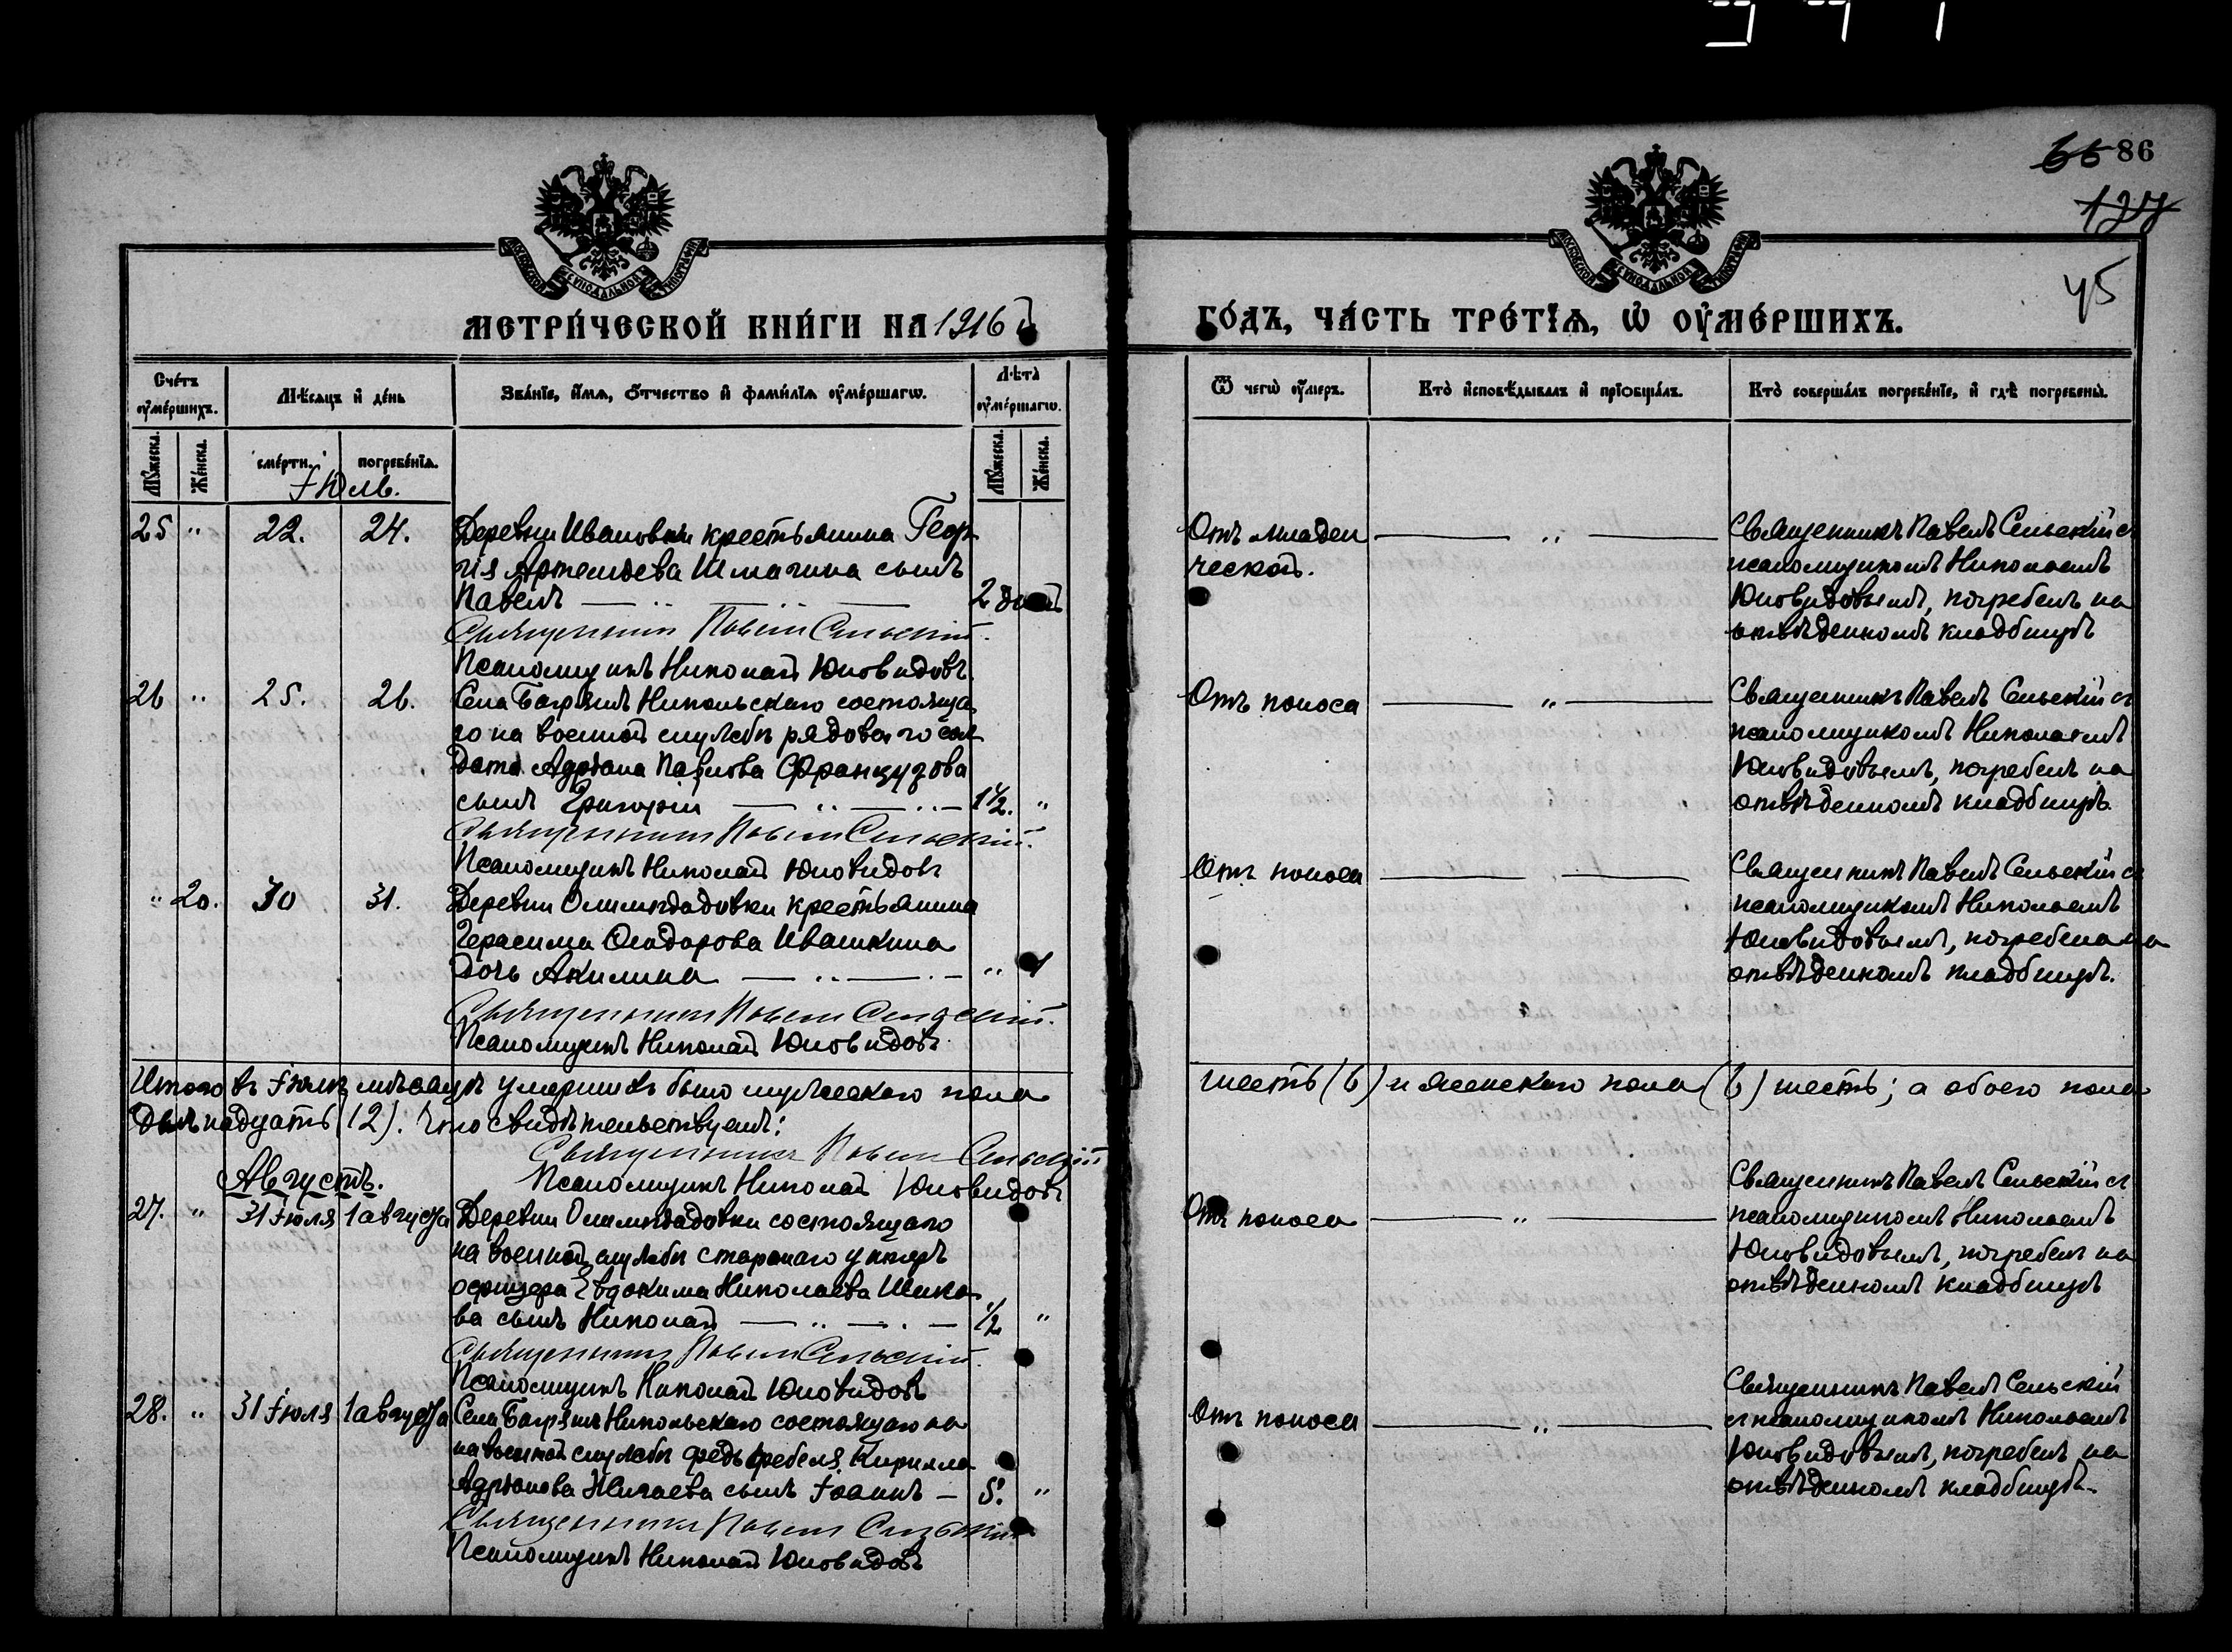 86
45
МЕТРИ́ЧЕСКОЙ КНИ́ГИ НА 1916 й
ГО́ДЪ, ЧА́СТЬ ТРЕ́ТЇѦ, Ѡ҆ ОУ҆МЕ́РШИХЪ.
Сче́тъ оу҆ме́ршихъ.
Мѣсѧцъ и҆ де́нь
Зва́нїе, и҆́мѧ, ѻ҆́тчество и҆ фами́лїѧ оу҆ме́ршагѡ.
Лѣта̀ оу҆ме́ршагѡ.
Ѿ чегѡ̀ оу҆́меръ.
Кто̀ и҆сповѣ́дывалъ и҆ прїѻбща́лъ.
Кто̀ соверша́лъ погребе́нїе, и҆ гдѣ̀ погребены̀.
Мꙋ́жеска.
Же́нска.
сме́рти.
погребе́нїѧ.
Мꙋ́жеска.
Же́нска.
Іюль.
25 " 22. 24. Деревни Ивановки крестьянина Геор
гія Артемьева Шмагина сынъ
Павелъ — " — " — 2 дней
Священникъ Павелъ Сельскій.
Псаломщикъ Николай Юновидовъ.
Отъ младен
ческой.
— " —
Священникъ Павелъ Сельскій съ
псаломщикомъ Николаемъ
Юновидовымъ, погребенъ на
отвѣденномъ кладбищѣ
26 " 25. 26. Села Багряшъ Никольскаго состояща
го на военной службѣ рядового сол
дата Адріана Павлова Французова
сынъ Григорій — " — " — 1½. "
Священникъ Павелъ Сельскій.
Псаломщикъ Николай Юновидовъ
Отъ поноса — " —
Священникъ Павелъ Сельскій съ
псаломщикомъ Николаемъ
Юновидовымъ, погребенъ на
отвѣденномъ кладбищѣ.
" 20. 30 31. Деревни Олимпіадовки крестьянина
Герасима Ѳеодорова Ивашкина
дочь Акилина — " — " — " 1
Священникъ Павелъ Сельскій.
Псаломщикъ Николай Юновидовъ.
Отъ поноса — " —
Священникъ Павелъ Сельскій съ
псаломщикомъ Николаемъ
Юновидовымъ, погребена на
отвѣденномъ кладбищѣ.
Итого въ Іюлѣ мѣсяцѣ умершихъ было мужескаго пола шесть (6) и женскаго пола (6) шесть; а обоего пола
двѣнадцать (12). Что свидѣтельствуемъ:
Священникъ Павелъ Сельскій
Псаломщикъ Николай Юновидовъ
Августъ.
27. " 31 Іюля 1 августа Деревни Олимпіадовки состоящаго
на военной службѣ старшаго унтеръ
офицера Евдокима Николаева Шико
ва сынъ Николай — " — . — ½ "
Священникъ Павелъ Сельскій.
Псаломщикъ Николай Юновидовъ
Отъ поноса — " —
Священникъ Павелъ Сельскій съ
псаломщикомъ Николаемъ
Юновидовымъ, погребенъ на
отвѣденномъ кладбищѣ
28. " 31 Іюля 1 августа Села Багряшъ Никольскаго состоящаго на
на военной службѣ фельдфебеля Кирилла
Адріанова сынъ Іоаннъ — 5. "
Священникъ Павелъ Сельскій
Псаломщикъ Николай Юновидовъ
Отъ поноса — " —
Священникъ Павелъ Сельскій
съ псаломщикомъ Николаемъ
Юновидовымъ, погребенъ на
отвѣденномъ кладбищѣ.